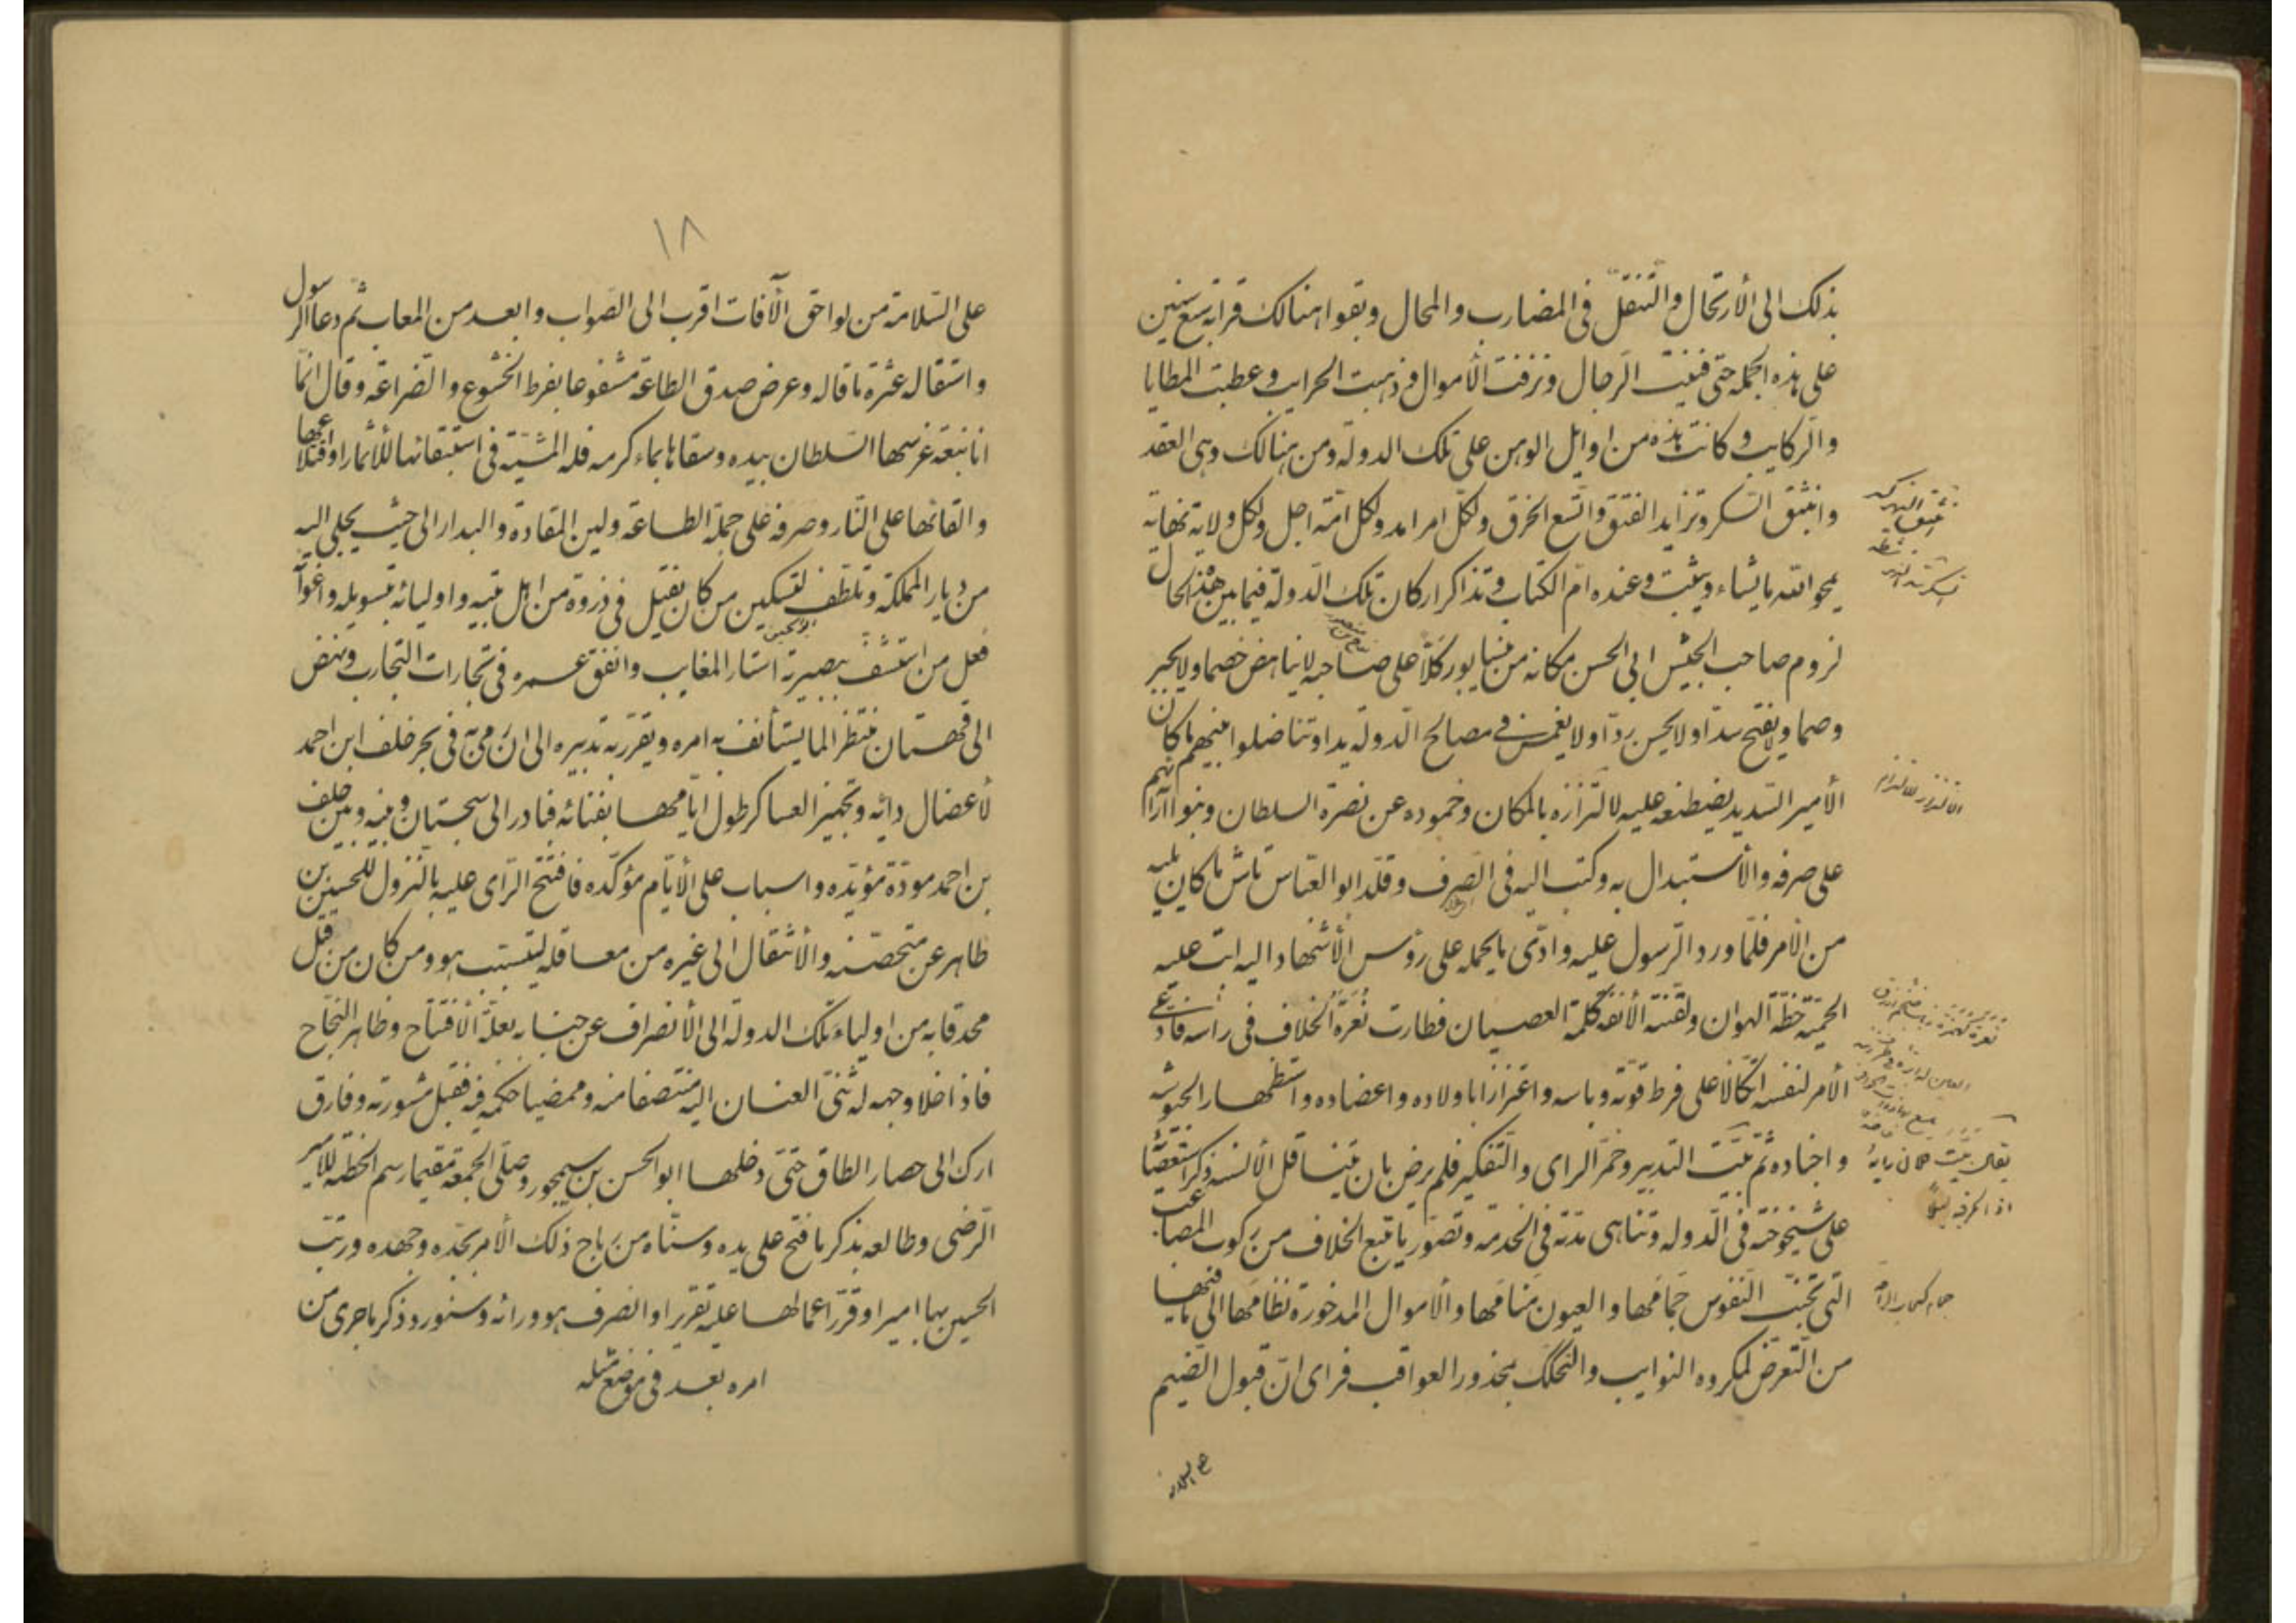 بذلك الى الأرتحال والتنقل فى المضارب والمحال وبقوا هنالك قرابة سبع سنين
على هذه الجملة حتى فنيت الرجال ونزفت الأموال و ذهبت الحرايب و عطبت المطايا
والركايب و كانت هذه من اوايل الوهن على تلك الدولة ومن هنالك وهى العقد
وانبثق السكر وتزايد الفتق واتسع الخرق ولكل امر امد ولكل امة اجل ولكل ولاية نهاية
يمحو الله ما يشاء ويثبت وعنده ام الكتاب وتذاكر اركان تلك الدولة فيما بين هذه الحال
لزوم صاحب الجيش ابى الحسن مكانه من نيسابور كلّا على صاحبه لا يناهض خصما ولا يجبر
وصما ولا يفتح سدا ولا يحسن ردا ولا يغمس فى مصالح الدولة يدا وتناضلوا بينهم ما كان
الأمير السديد يضطغنه عليه لالتزازه بالمكان وخموده عن نصرة السلطان وبنوا آراءهم
على صرفه والأستبدال به وكتب اليه فى الصرف وقلد ابو العباس تاش ما كان يليه
من الأمر فلما ورد الرسول عليه وادى ما يحمله على رؤس الأشهاد اليه ابت عليه
الحمية خطة الهوان ولقنته الأنفة كلمة العصيان فطارت نعرة الخلاف فى راسه فادعى
الأمر لنفسه اتكالا على فرط قوته وباسه واعتزازا باولاده واعضاده واستظهارا بجيوشه
واجناده ثم بيت التدبير وخمر الراى والتفكير فلم يرض بان يتناقل الألسنة ذكر استعصائه
على شيخوخته فى الدولة وتناهى مدته فى الخدمة وتصور ما يتبع الخلاف من ركوب المصاعب
التى تجنب النفوس جمامها والعيون منامها والأموال المذخورة نظامها الى ما فيها
من التعرض لمكروه النوايب والتحكك بمحذور العواقب فراى ان قبول الضيم
على السلامة
١٨
على السلامة من لواحق الآفات اقرب الى الصواب وابعد من المعاب ثم دعا الرسول
واستقاله عثرة ما قاله وعرض صدق الطاعة مشفوعا بفرط الخشوع والضراعة وقال انما
انا نبعة غرسها السلطان بيده وسقاها بماء كرمه فله المشية فى استبقائها للأثمار او اقتلاعها
والقائها على النار وصرفه على جملة الطاعة ولين المقادة والبدار الى حيث يجلى اليه
من ديار المملكة وتلطف لتسكين من كان يفتل فى ذروة من اهل بيته واوليائه بتسويله واغوائه
فعل من استشف ببصيرته استار المغايب وانفق عمره فى تجارات التجارب ونهض
الى قهستان منتظرا لما يستأنف به امره ويقرر به تدبيره الى ان رمى به فى نحر خلف ابن احمد
لأعضال دائه وتجهيز العساكر طول ايامها بفنائه فبادر الى سجستان وبينه وبين خلف
بن احمد مودة مؤبده واسباب على الأيام مؤكده فافتتح الراى عليه بالنزول للحسين بن
طاهر عن متحصنه والأنتقال الى غيره من معاقله ليتسبب هو ومن كان من قبل
محدقا به من اولياء تلك الدولة الى الأنصراف عن جنابه بعلة الأفتتاح وظاهر النجاح
فاذا خلا وجهه له ثنى العنان اليه منتصفا منه وممضيا حكمه فيه فقبل مشورته وفارق
ارك الى حصار الطاق حتى دخلها ابو الحسن بن سيمجور وصلى الجمعة مقيما رسم الخطبة للامير
الرضى وطالعه بذكر ما فتح على يده وسناه من رتاج ذلك الأمر بجده وجهده ورتب
الحسين بها اميرا وقرر اعمالها عليه تقريرا وانصرف هو وراءه وسنورد ذكر ما جرى من
امره بعد فى موضع مثله